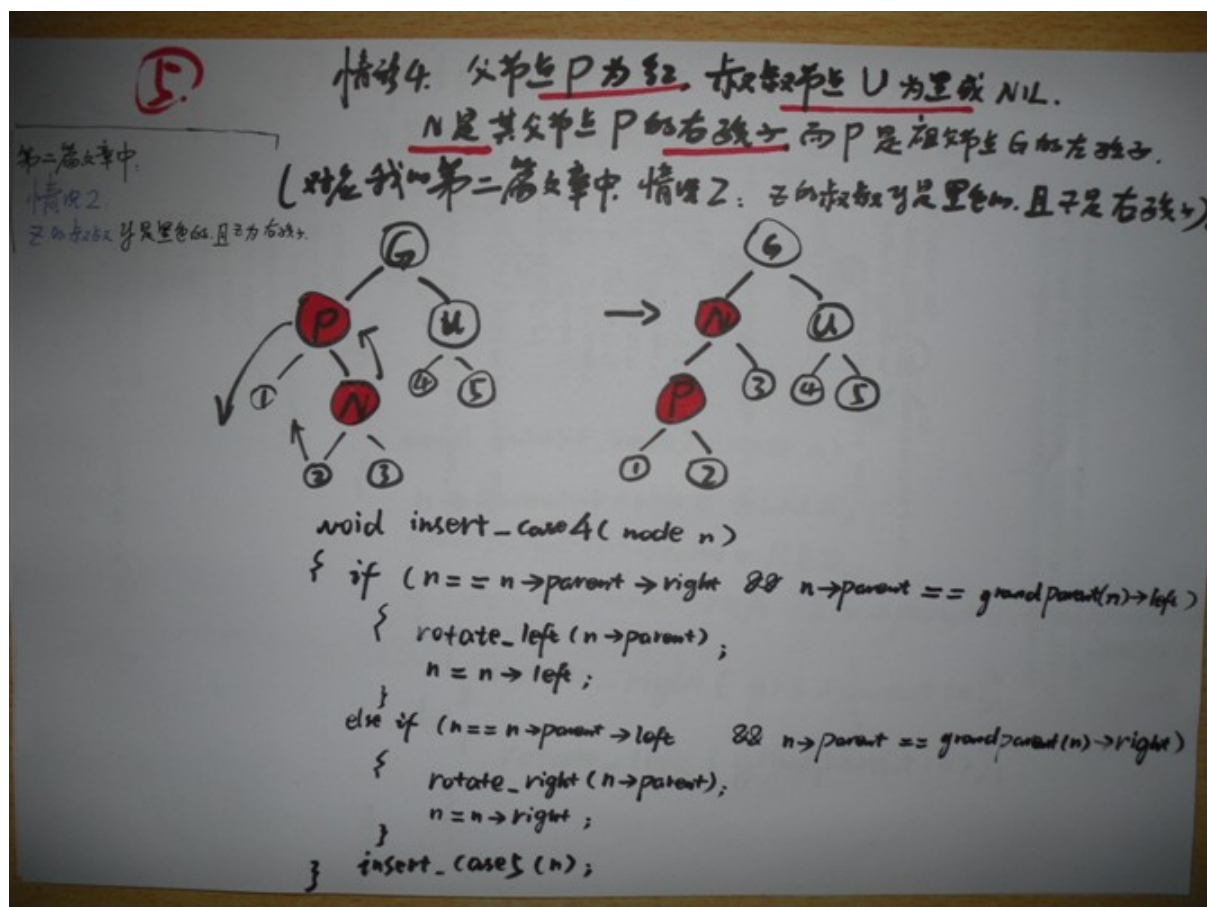 ⑤
情形4. 父节点P为红, 叔叔节点U为黑或NIL.
N是其父节点P的右孩子, 而P是祖父节点G的左孩子.
(对应我的第二篇文章中. 情况2: z的叔叔y是黑色的. 且z是右孩子)
第二篇文章中:
情况2
z的叔叔y是黑色的. 且z为右孩子.
G
P U
① N ④ ⑤
② ③
→
G
N U
P ③ ④ ⑤
① ②
void insert_case4( node n)
{ if (n == n→parent→right && n→parent == grandparent(n)→left)
{ rotate_left (n→parent);
n = n→left;
}
else if (n == n→parent→left && n→parent == grandparent(n)→right)
{ rotate_right (n→parent);
n = n→right;
}
} insert_case5 (n);